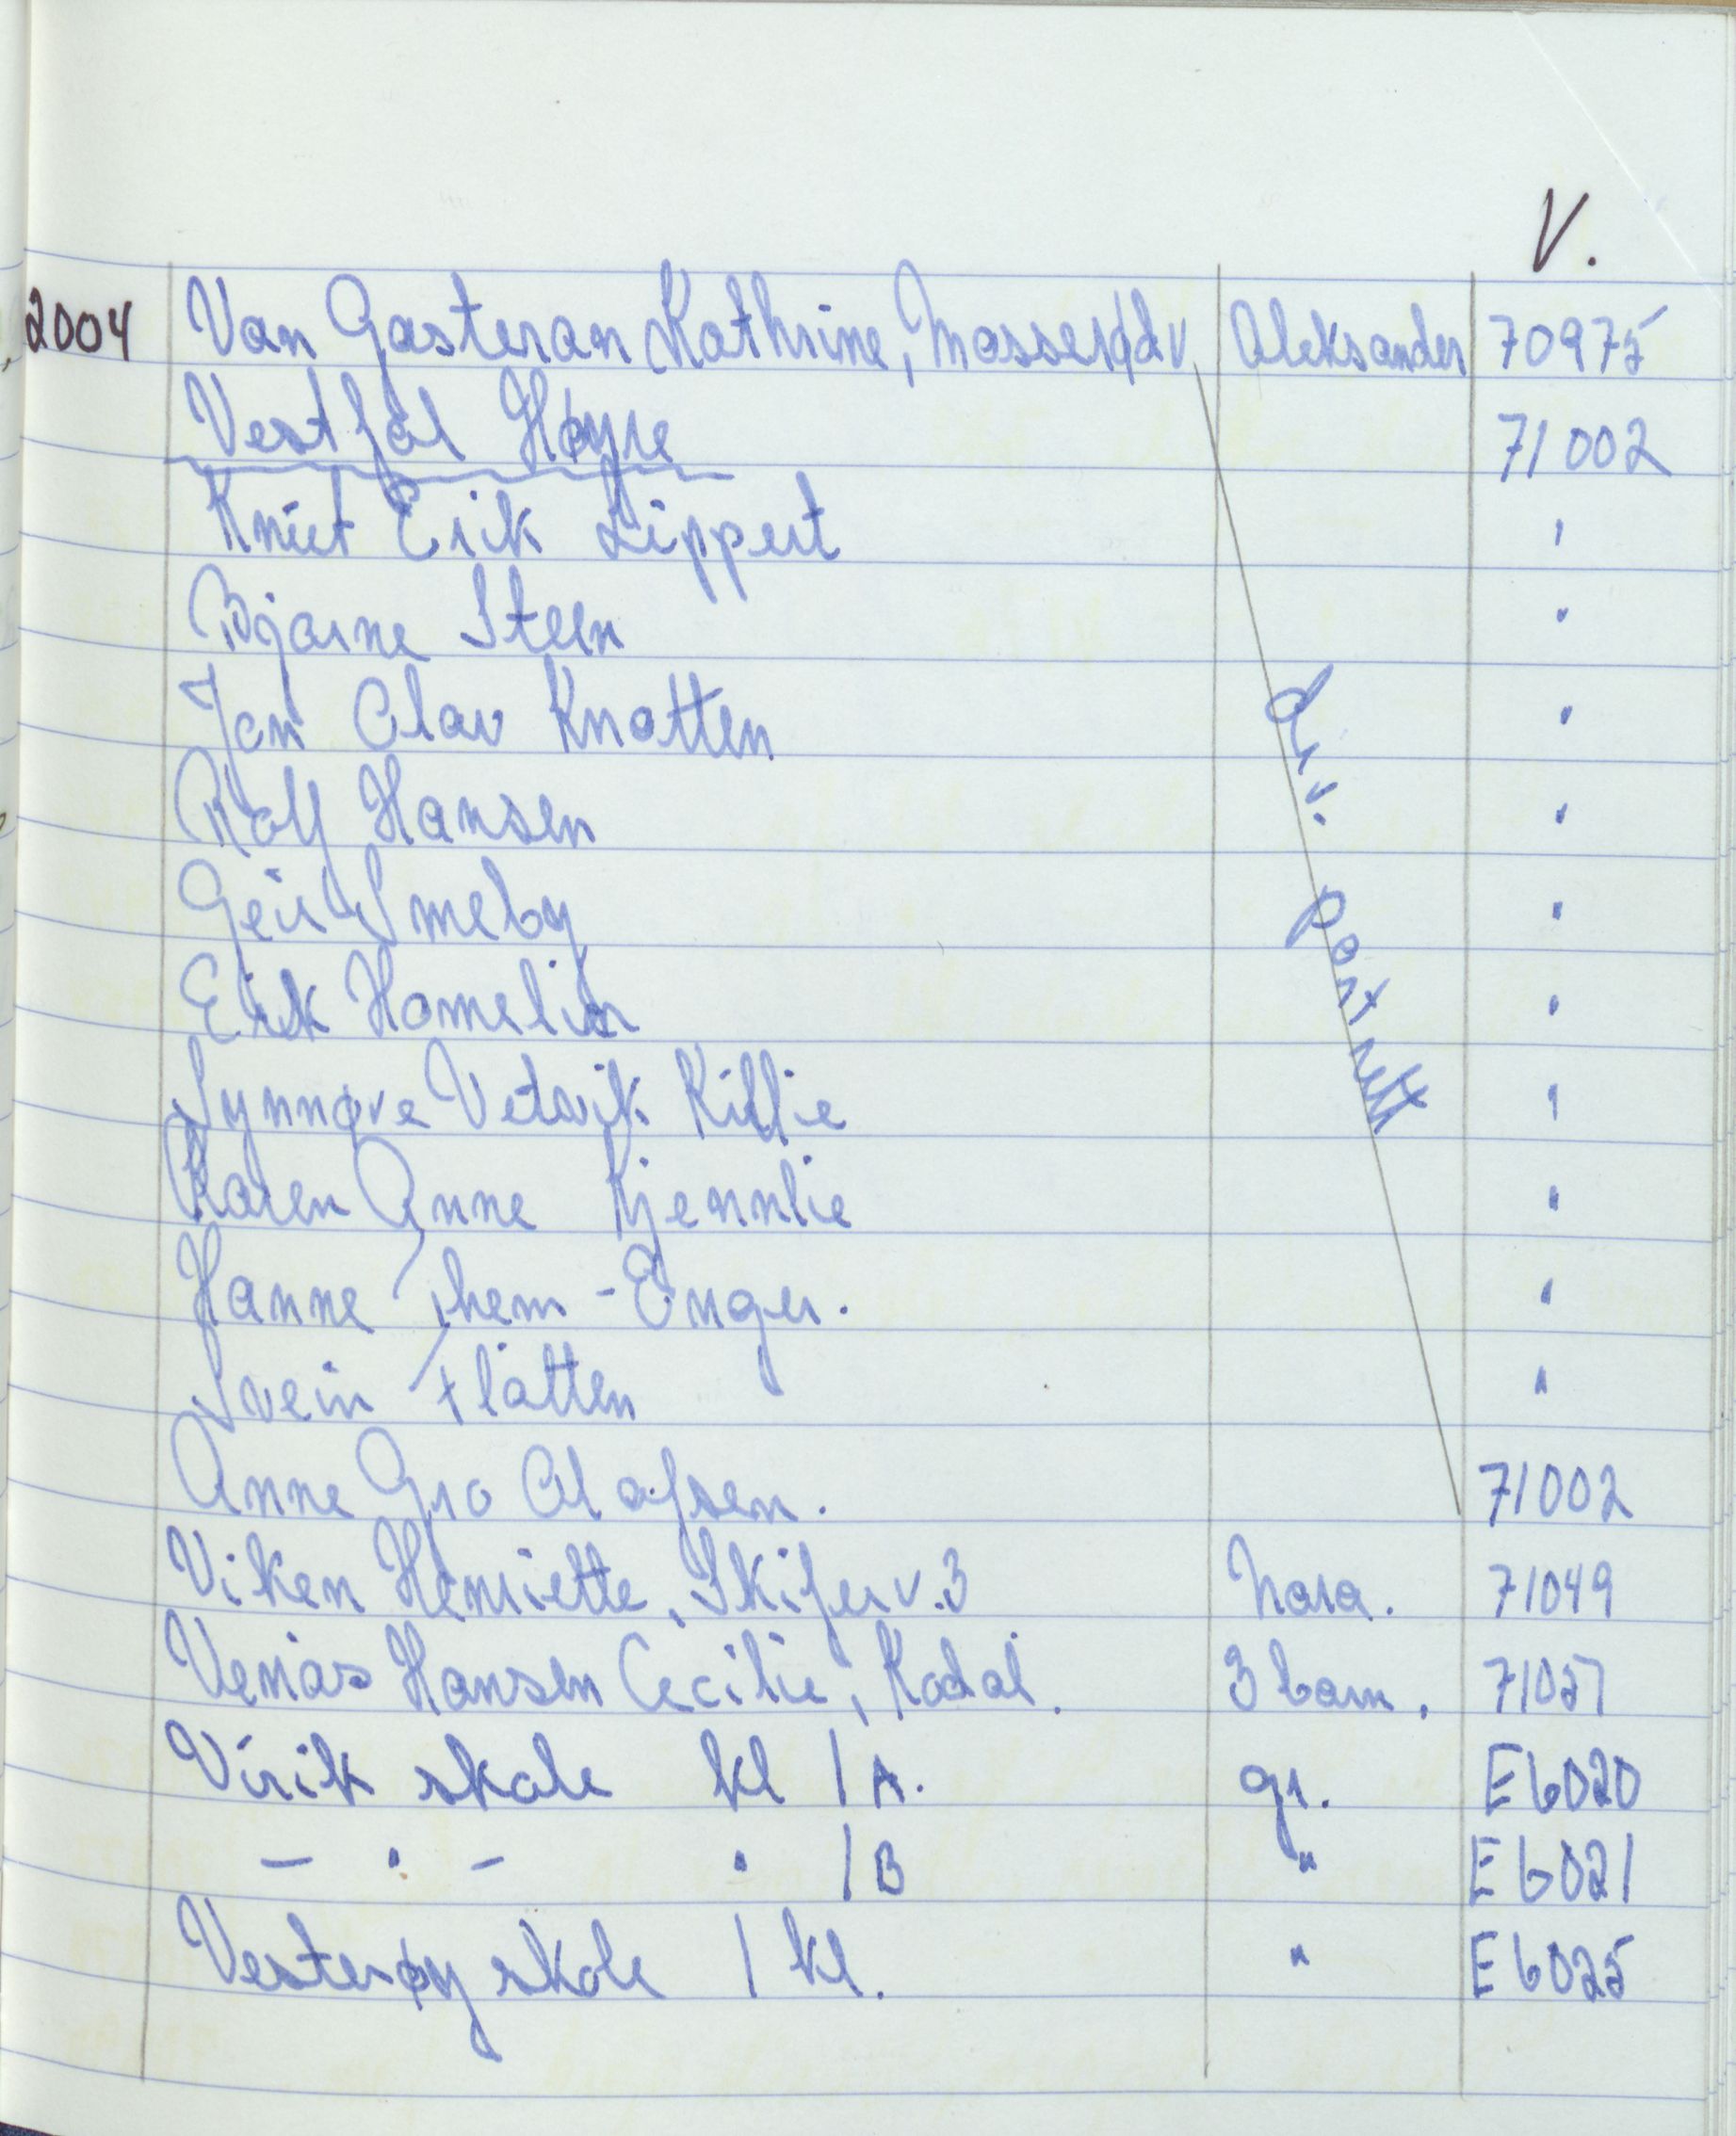 V.
2004 Van Gasteran Kathrine, Masserødv Aleksander 70975
Vestfol Høyre 71002
Knut Erik Lippert "
Bjarne Steen "
Jan Olav Knatten "
Rolf Hansen "
Geir Smeby "
Erik Homelin "
Synnøve Vetvik Killie "
Karen Anne Kjennlie "
Hanne Them-Enger. "
Svein Flåtten "
Anne Gro Olafsen. 71002
div. portrett
Viken Henriette, Skiferv.3 Nora. 71049
Venås Hansen Cecilie, Kodal. 3 barn. 71057
Virik skole kl 1A. gr. E6020
- " - " 1B " E6021
Vesterøy skole 1 kl. " E6025